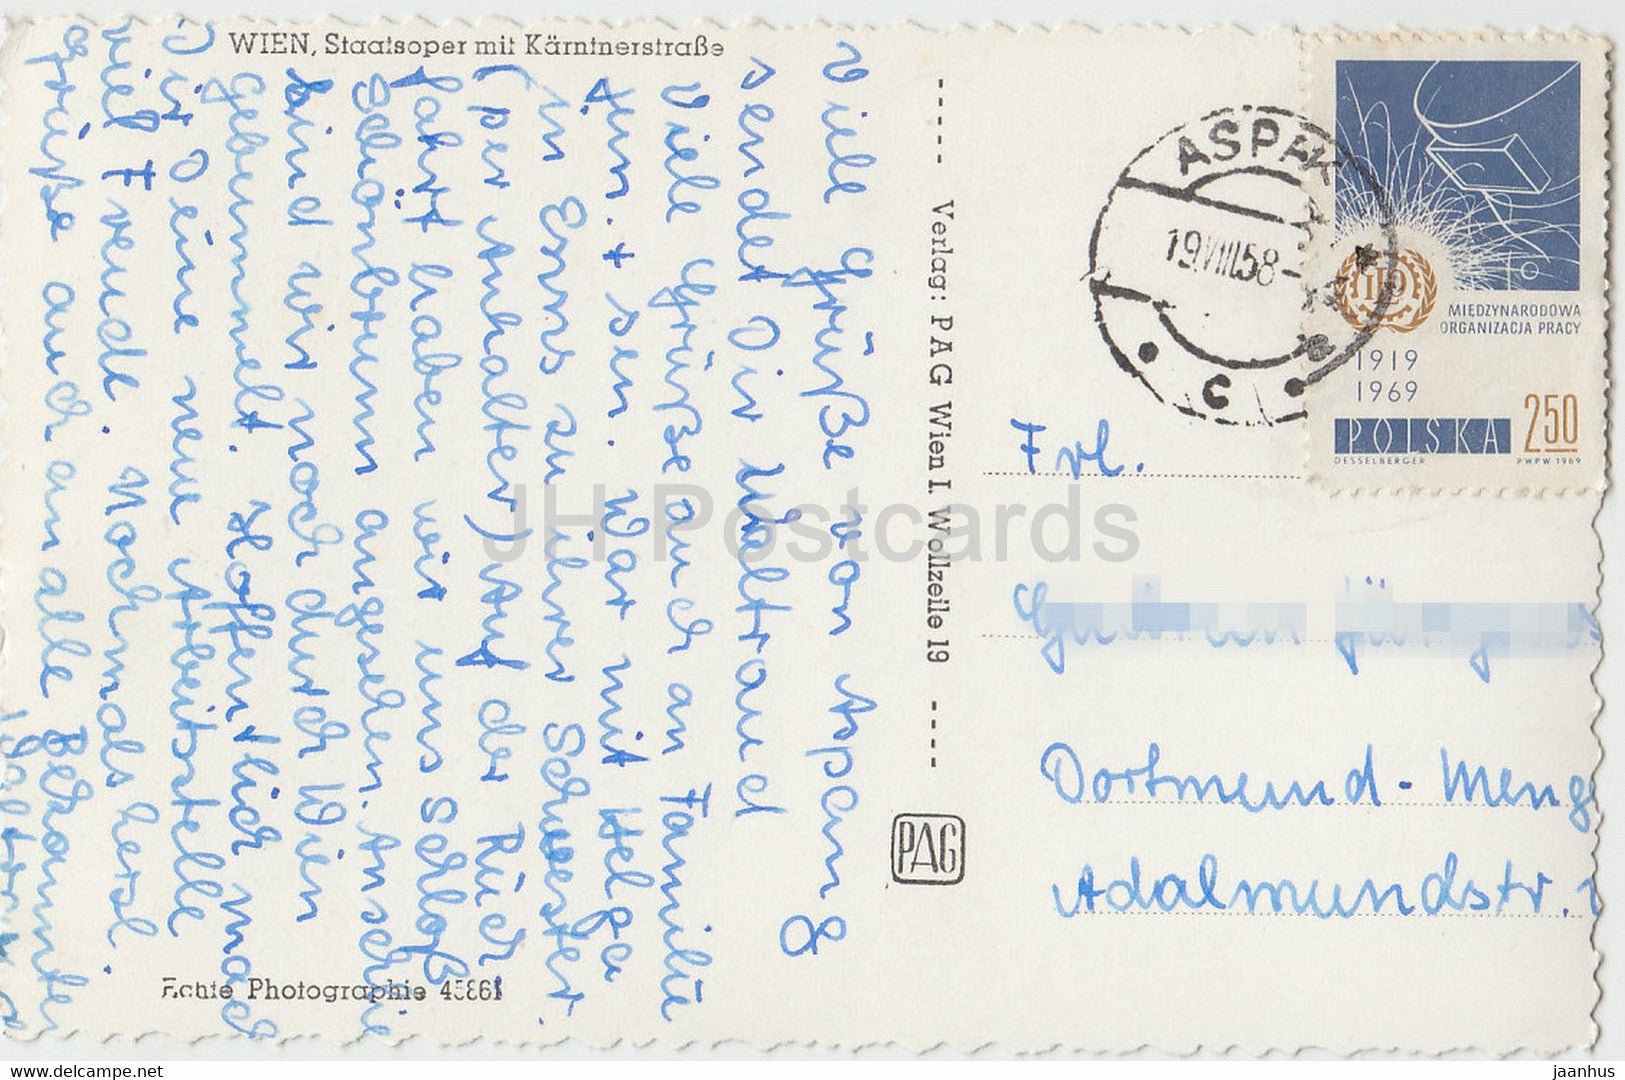 WIEN, Staatsoper mit Kärntnerstraße
Viele Grüße von Aspang
sendet Dir Waltraud
Viele Grüße auch an Familie
Jün. + sen. War mit Helga
in Enns zu ihrer Schwester.
(per Anhalter) Auf der Rück
fahrt haben wir uns Schloß
Schönbrunn angesehen. Anschlie
sind wir noch durch Wien
gebummelt. Hoffentlich mach
Dir Deine neue Arbeitsstelle
viel Freude. Nochmals herzl.
Grüße auch an alle Bekannte
Waltraud
Echte Photographie 45861
Verlag: PAG Wien I. Wollzeile 19
PAG
ASPA
19.VIII.58
c
MIĘDZYNARODOWA
ORGANIZACJA PRACY
1919
1969
POLSKA 250
DESSELBERGER PWPW 1969
Frl.
Dortmund-Meng
Adalmundstr.
JH Postcards
delcampe.net
jaanhus